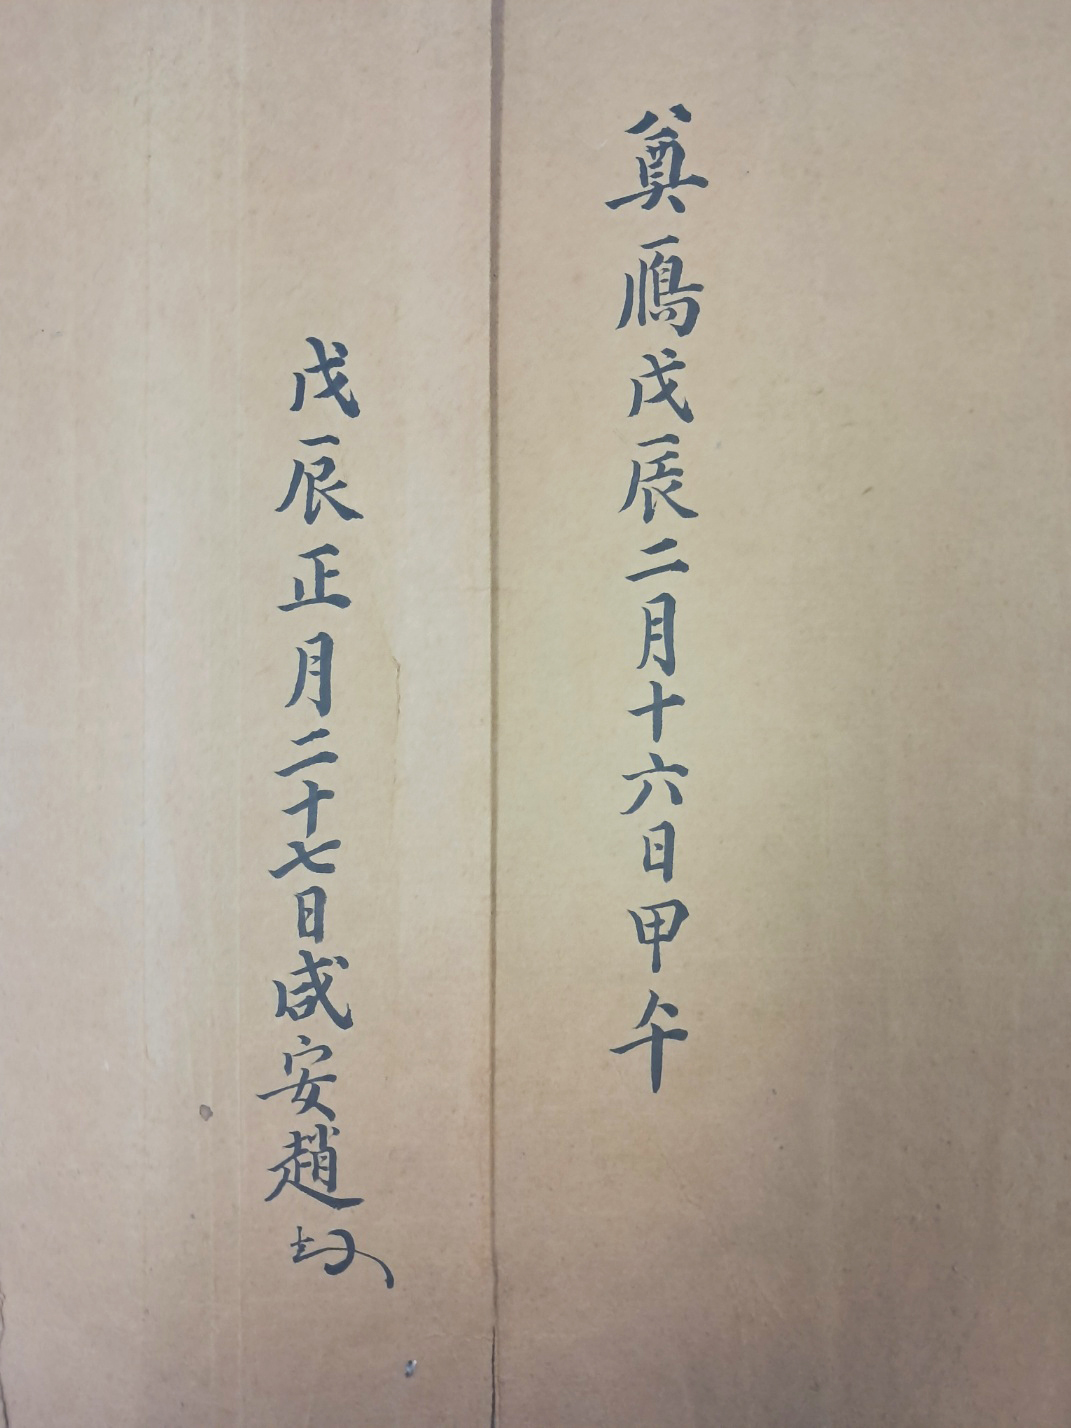 奠鴈戊辰二月十六日甲午
戊辰正月二十七日咸安趙